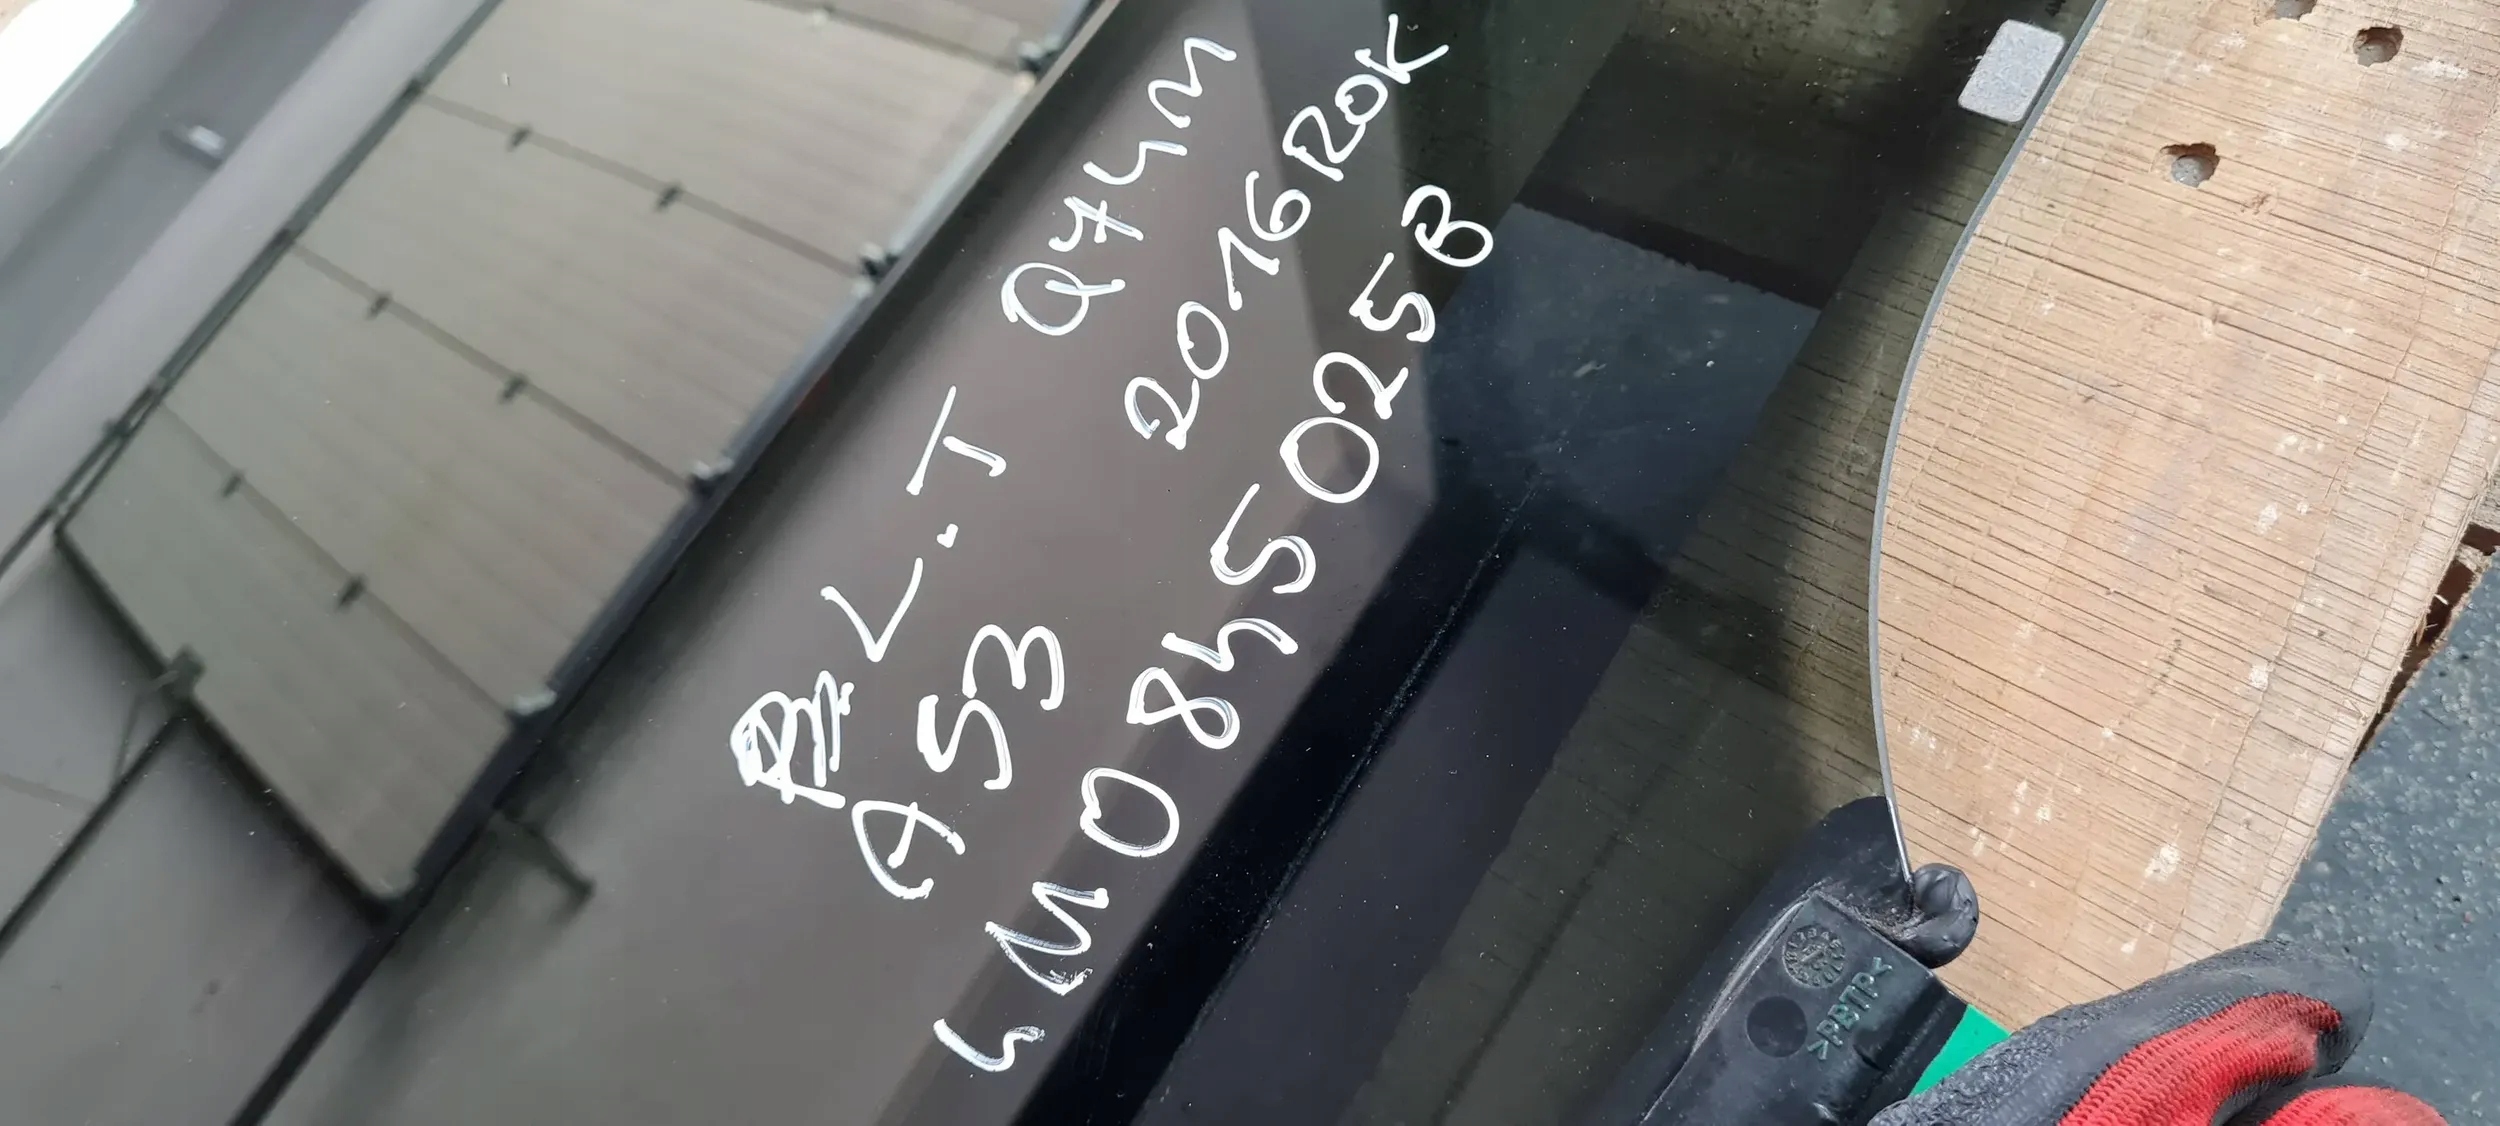 L.T Q7 4M
AS3 2016 ROK
4M0845025B
>PBTP<